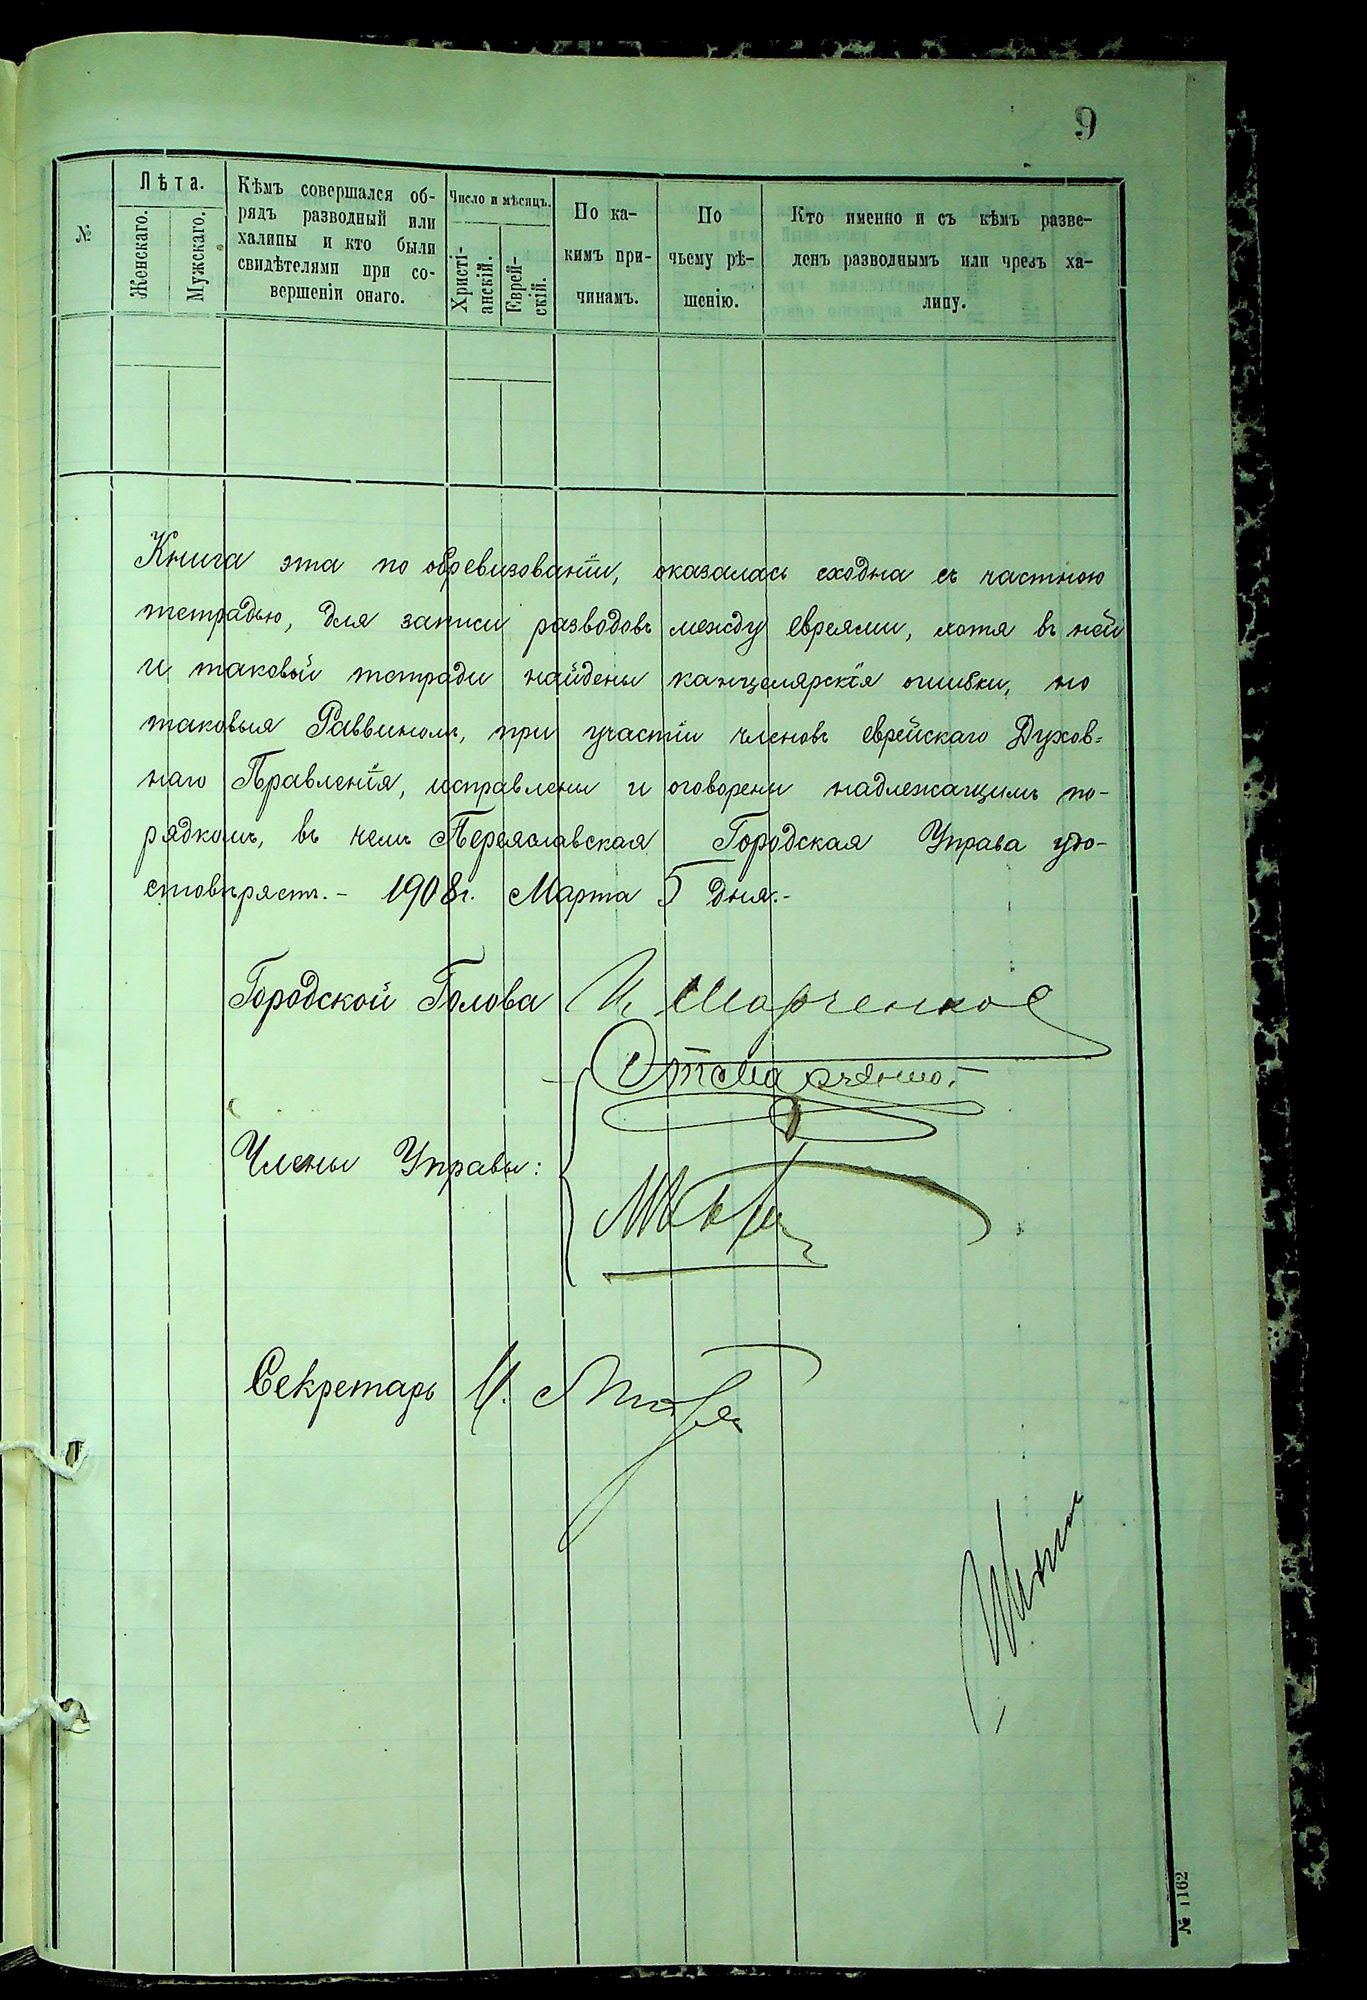 9
№
Лѣта.
Женскаго.
Мужскаго.
Кѣмъ совершался об-
рядъ разводный или
халицы и кто были
свидѣтелями при со-
вершеніи онаго.
Число и мѣсяцъ.
Христі-
анскій.
Еврей-
скій.
По ка-
кимъ при-
чинамъ.
По
чьему рѣ-
шенію.
Кто именно и съ кѣмъ разве-
денъ разводнымъ или чрезъ ха-
лицу.
Книга эта по обревизованіи, оказалась сходна съ частною
тетрадью, для записи разводовъ между евреями, хотя въ ней
и таковой тетради найдены канцелярскія ошибки, но
таковыя Раввиномъ, при участіи членовъ еврейскаго Духов=
наго Правленія, исправлены и оговорены надлежащимъ по-
рядкомъ, въ чемъ Переяславская Городская Управа удо-
стовѣряетъ.- 1908г. Марта 5 дня.-
Городской Голова И Марченко
Члены Управы:
Секретарь И.
№ 1162